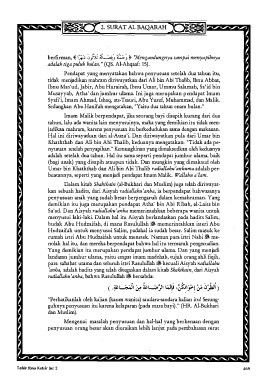 2. SURAT AL BAQARAH
berfirman, ﴿ وَحَمْلُهُ وَفِصَالُهُ ثَلَاثُونَ شَهْرًا ﴾ "Mengandungnya sampai menyapihnya
adalah tiga puluh bulan." (QS. Al-Ahqaaf: 15).
Pendapat yang menyatakan bahwa penyusuan setelah dua tahun itu,
tidak menjadikan mahram diriwayatkan dari Ali bin Abi Thalib, Ibnu Abbas,
Ibnu Mas'ud, Jabir, Abu Hurairah, Ibnu Umar, Ummu Salamah, Sa'id bin
Musayyab, Atha' dan jumhur ulama. Ini juga merupakan pendapat Imam
Syafi'i, Imam Ahmad, Ishaq, ats-Tsauri, Abu Yusuf, Muhammad, dan Malik.
Sedangkan Abu Hanifah mengatakan, "Yaitu dua tahun enam bulan."
Imam Malik berpendapat, jika seorang bayi disapih kurang dari dua
tahun, lalu ada wanita lain menyusuinya, maka yang demikian itu tidak men-
jadikan mahram, karena penyusuan itu berkedudukan sama dengan makanan.
Hal ini diriwayatkan dari al-Auza'i. Dan diriwayatkan pula dari Umar bin
Khaththab dan Ali bin Abi Thalib, keduanya mengatakan: "Tidak ada pe-
nyusuan setelah penyapihan." Kemungkinan yang dimaksudkan oleh keduanya
adalah setelah dua tahun. Hal itu sama seperti pendapat jumhur ulama, baik
(bagi anak) yang disapih maupun tidak. Dan mungkin yang dimaksud oleh
Umar bin Khaththab dan Ali bin Abi Thalib radhiallahu 'anhuma adalah per-
buatannya, seperti yang menjadi pendapat Imam Malik. Wallahu a'lam.
Dalam kitab Shahihain (al-Bukhari dan Muslim) juga telah diriwayat-
kan sebuah hadits, dari Aisyah radhiallahu 'anha, ia berpendapat bahwasanya
penyusuan anak yang sudah besar berpengaruh dalam kemahraman. Yang
demikian itu juga merupakan pendapat Atha' bin Abi Ribah, al-Laits bin
Sa'ad. Dan Aisyah radhiallahu 'anha memerintahkan beberapa wanita untuk
menyusui laki-laki. Dalam hal itu Aisyah berlandaskan pada hadits Salim,
budak Abu Hudzaifah, di mana Rasulullah ﷺ memerintahkan isteri Abu
Hudzaifah untuk menyusui Salim, padahal ia sudah besar. Salim masuk ke
rumah isteri Abu Hudzaifah untuk menyusu. Namun para isteri Nabi ﷺ me-
nolak hal itu, dan mereka berpendapat bahwa hal itu termasuk pengecualian.
Yang demikian itu merupakan pendapat jumhur ulama. Dan yang menjadi
landasan jumhur ulama, yaitu empat imam madzhab, tujuh orang ahli fiqih,
para sahabat utama dan seluruh isteri Rasulullah ﷺ kecuali Aisyah radhiallahu
'anha, adalah hadits yang telah ditegaskan dalam kitab Shahihain, dari Aisyah
radhiallahu 'anha, bahwa Rasulullah ﷺ bersabda:
( اُنْظُرْنَ مَنْ إِخْوَانُكُنَّ، فَإِنَّمَا الرَّضَاعَةُ مِنَ الْمَجَاعَةِ. )
"Perhatikanlah oleh kalian (kaum wanita) saudara-saudara kalian itu! Sesung-
guhnya penyusuan itu karena kelaparan (pada masa bayi)." (HR. Al-Bukhari
dan Muslim).
Mengenai masalah penyusuan dan hal-hal yang berkenaan dengan
penyusuan orang besar akan diuraikan lebih lanjut pada pembahasan surat
Tafsir Ibnu Katsir Juz 2
469